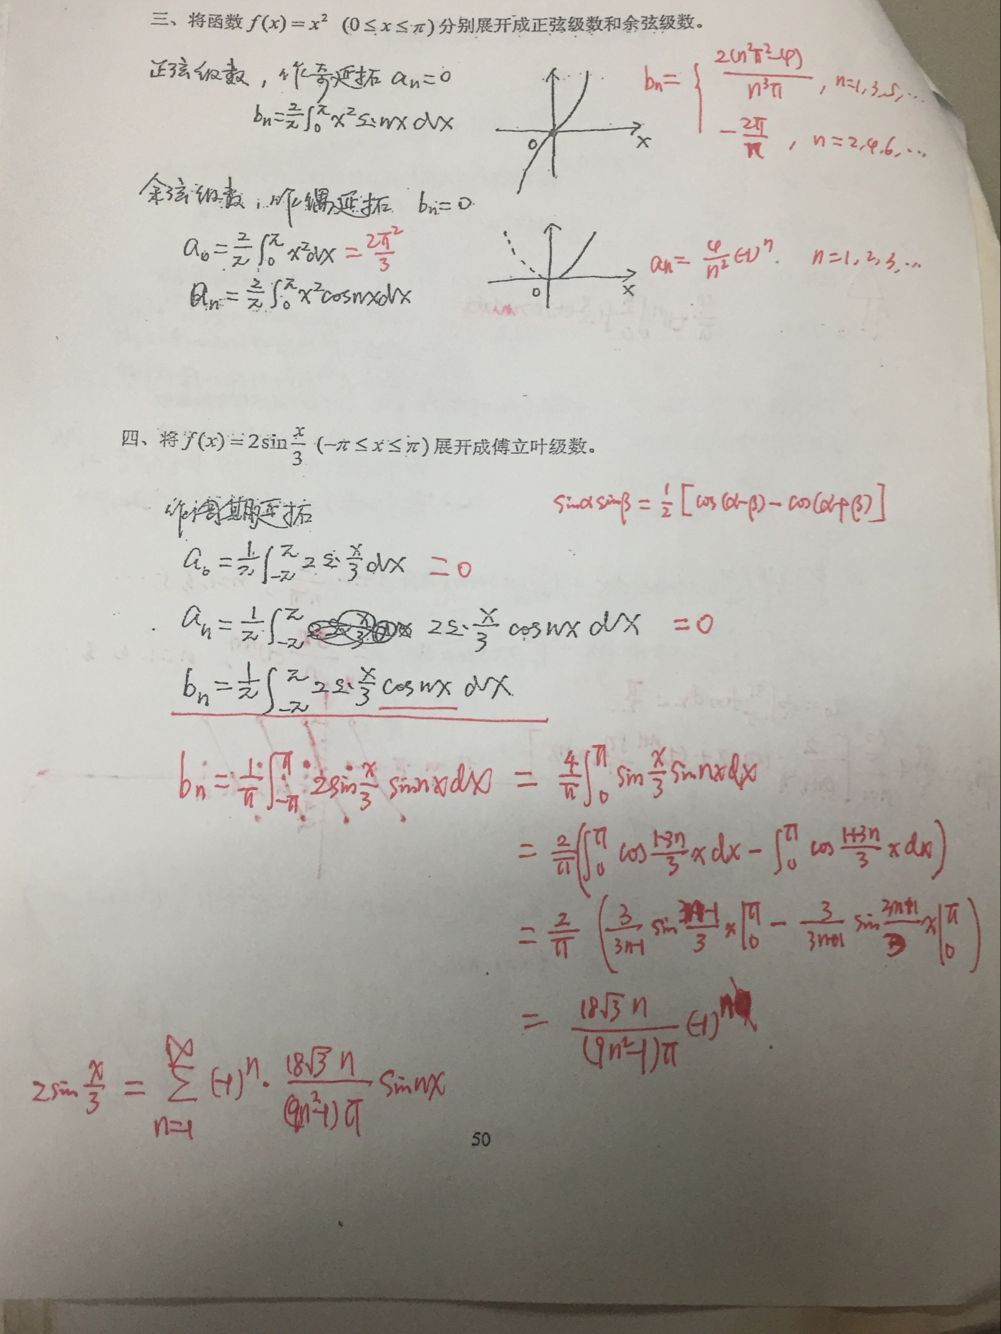 三、将函数 f(x)=x² (0≤x≤π)分别展开成正弦级数和余弦级数。
正弦级数，作奇延拓 aₙ=0
bₙ=2/π ∫₀^π x² sin nx dx
bₙ= { 2(n²π²-4)/(n³π) , n=1,3,5,…
-2π/n , n=2,4,6,…
0 x
余弦级数，作偶延拓 bₙ=0
a₀=2/π ∫₀^π x²dx =2π²/3
aₙ=2/π ∫₀^π x²cosnxdx
0 x
aₙ=4/n² (-1)ⁿ. n=1,2,3,…
四、将 f(x)=2sin x/3 (-π≤x≤π)展开成傅立叶级数。
作周期延拓
sinαsinβ=1/2[cos(α-β)-cos(α+β)]
a₀=1/π ∫_{-π}^{π} 2 sin x/3 dx =0
aₙ=1/π ∫_{-π}^{π} 2 sin x/3 cosnx dx =0
bₙ=1/π ∫_{-π}^{π} 2 sin x/3 cosnx dx.
bₙ=1/π ∫_{-π}^{π} 2sin x/3 sinnx dx = 4/π ∫₀^π sin x/3 sinnxdx
= 2/π (∫₀^π cos (1-3n)/3 x dx - ∫₀^π cos (1+3n)/3 x dx)
= 2/π ( 3/(3n-1) sin (3n-1)/3 x|₀^π - 3/(3n+1) sin (3n+1)/3 x|₀^π )
= 18√3 n/((9n²-1)π) (-1)ⁿ
2sin x/3 = ∑_{n=1}^{∞} (-1)ⁿ· 18√3 n/((9n²-1)π) sinnx
50